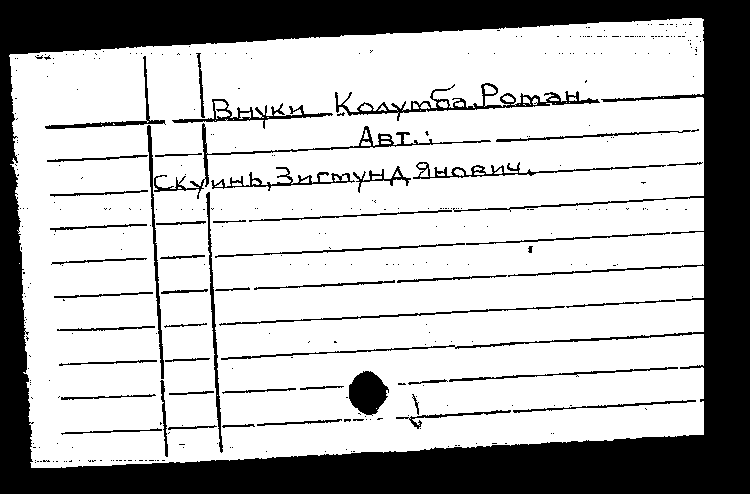 Внуки Колумба. Роман.
Авт.:
Скуинь, Зигмунд Янович.